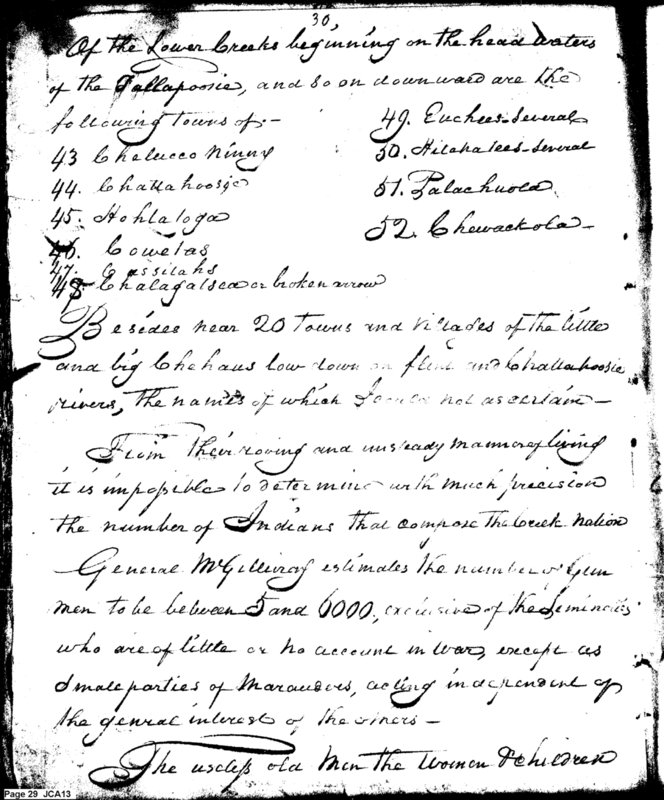 30
Of the Lower Creeks beginning on the head waters
of the Tallapoosie, and so on downward are the
following towns of:-
43 Chelucco Ninny
44. Chattahoosie
45. Hohtatoga
46. Cowetas
47. Cassitahs
48. Chalagatsca or broken arrow
49. Euchees-Several
50. Hitchatees-Several
51. Palachuola
52. Chewackola-
Besides near 20 Towns and Villages of the little
and big Chehaus low down on flint and Chattahoosie
rivers, the names of which I could not ascertain-
From their roving and unsteady manner of living
it is impossible to determine with much precision
the number of Indians that compose the Creek nation
General McGillivray estimates the number of Gun
men to be between 5 and 6000, exclusive of the Seminolies
who are of little or no account in War, except as
Small parties of Marauders, acting independent of
the genral interest of the others-
The useless old Men the Women & children
Page 29 JCA13